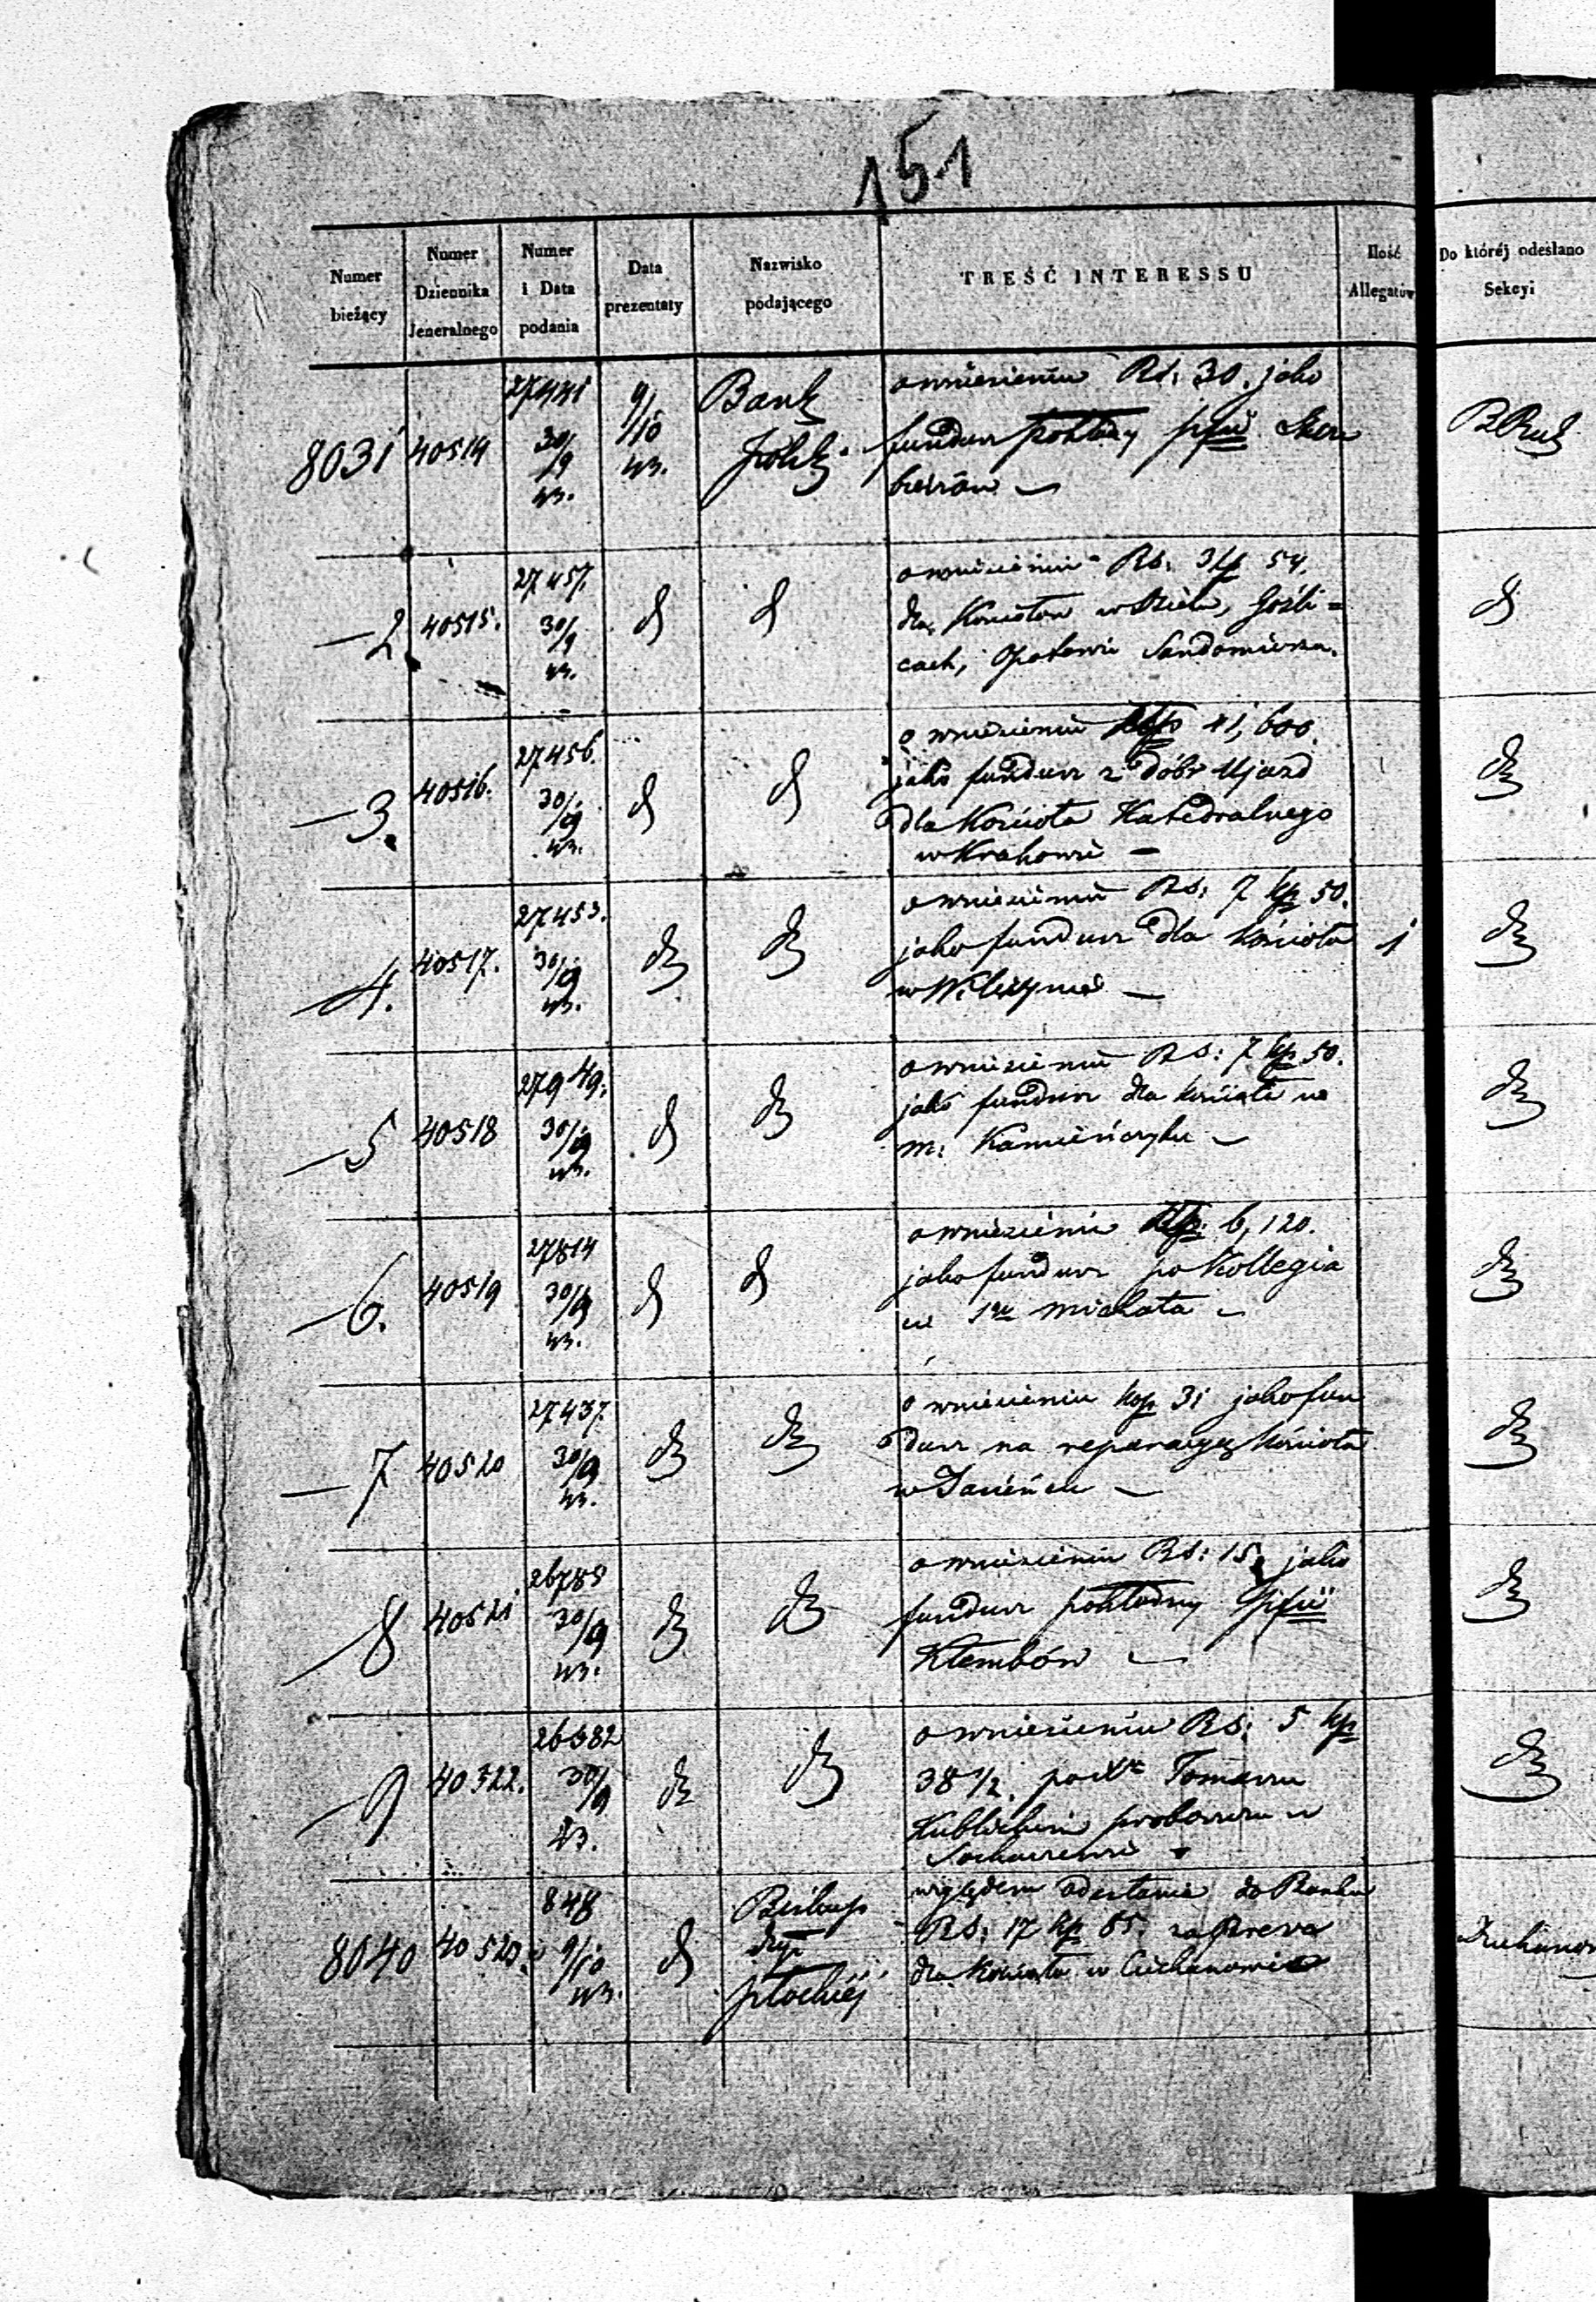 151
Numer bieżący
Numer Dziennika Jeneralnego
Numer i Data podania
Data prezentaty
Nazwisko podającego
TREŚĆ INTERESSU
Ilość Allegatów
Do któréj odesłano Sekcyi
8031 40514 27441 30/9 43. 9/10 43. Bank Polski
o wniesieniu Rs: 30. jako
fundusz pokładny
—2 40515. 27457. 30/9 43. d d
o wniesieniu Rs: 3 kp 54. d
dla Kościołów w Gośli=
cach, Opatowie Sandomierzu.
—3. 40516. 27456. 30/9 43. d d
o wniesieniu 41,600. d
jako fundusz z dóbr Ujazd
dla Kościoła Katedralnego
w Krakowie —
4. 40517. 27453. 30/9 43. d d
o wniesieniu Rs: 7 kp 50. 1 d
jako fundusz dla kościoła
w —
—5 40518 27949. 30/9 43. d d
o wniesieniu Rs: 7 kp 50. d
jako fundusz dla kościoła w
m. Kamieńczyku —
—6. 40519 27814 30/9 43. d d
o wniesieniu 6,120. d
jako fundusz po Kollegia
Michała —
—7 40520 27437. 30/9 43. d d
o wniesieniu kop 31 jako fun d
dusz na reparacyą kościoła
w —
8 40521 26785 30/9 43. d d
o wniesieniu Rs: 15 jako d
fundusz pokładny
Klembów —
9 40522. 26382 30/9 43. d d
o wniesieniu Rs: 5 kp d
38 1/2. po Xe Tomaszu
Kublickim proboszczu w
Sochaczewie —
8040 40520. 848 9/10 43. d Biskup dyi płockiéj
względem odesłania do Banku
Rs: 17 kp 85. za drzewa
dla Kościoła w Ciechanowie